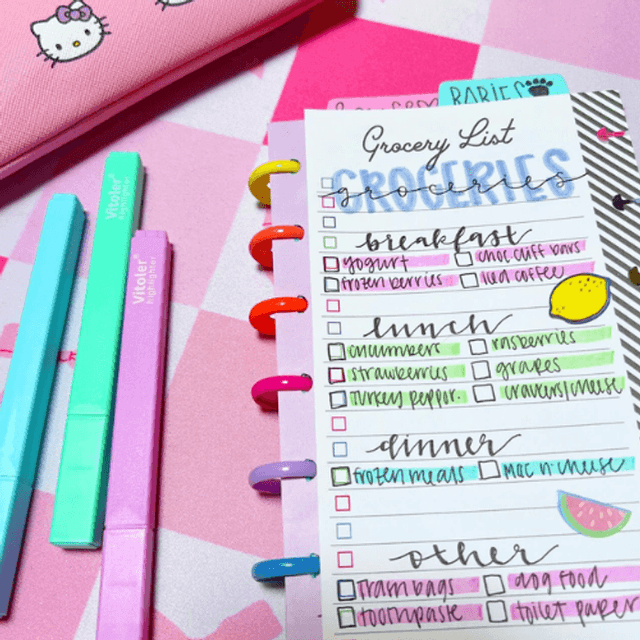 BABIES
Grocery List
GROCERIES
groceries
breakfast
yogurt choc cliff bars
frozen berries iced coffee
lunch
cucumbers rasberries
strawberries grapes
turkey peppor. crackers/cheese
dinner
frozen meals mac n' cheese
other
trash bags dog food
toothpaste toilet paper
Vitoler®
highlighter
Vitoler®
highlighter